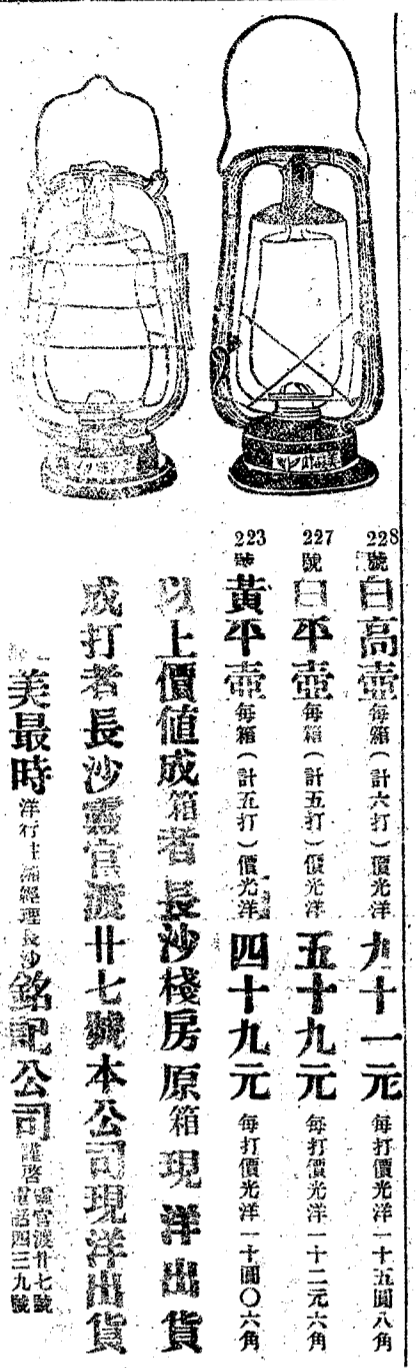 228號白高壺每箱（計六打）價光洋九十一元每打價光洋一十五圓八角
227號白平壺每箱（計五打）價光洋五十九元每打價光洋一十二元六角
223號黃平壺每箱（計五打）價光洋四十九元每打價光洋一十圓〇六角
以上價値成箱者長沙棧房原箱現洋出貨
成打者長沙靈官渡廿七號本公司現洋出貨
美最時洋行駐湘經理長沙銘記公司謹啓
靈官渡廿七號
電話四三九號